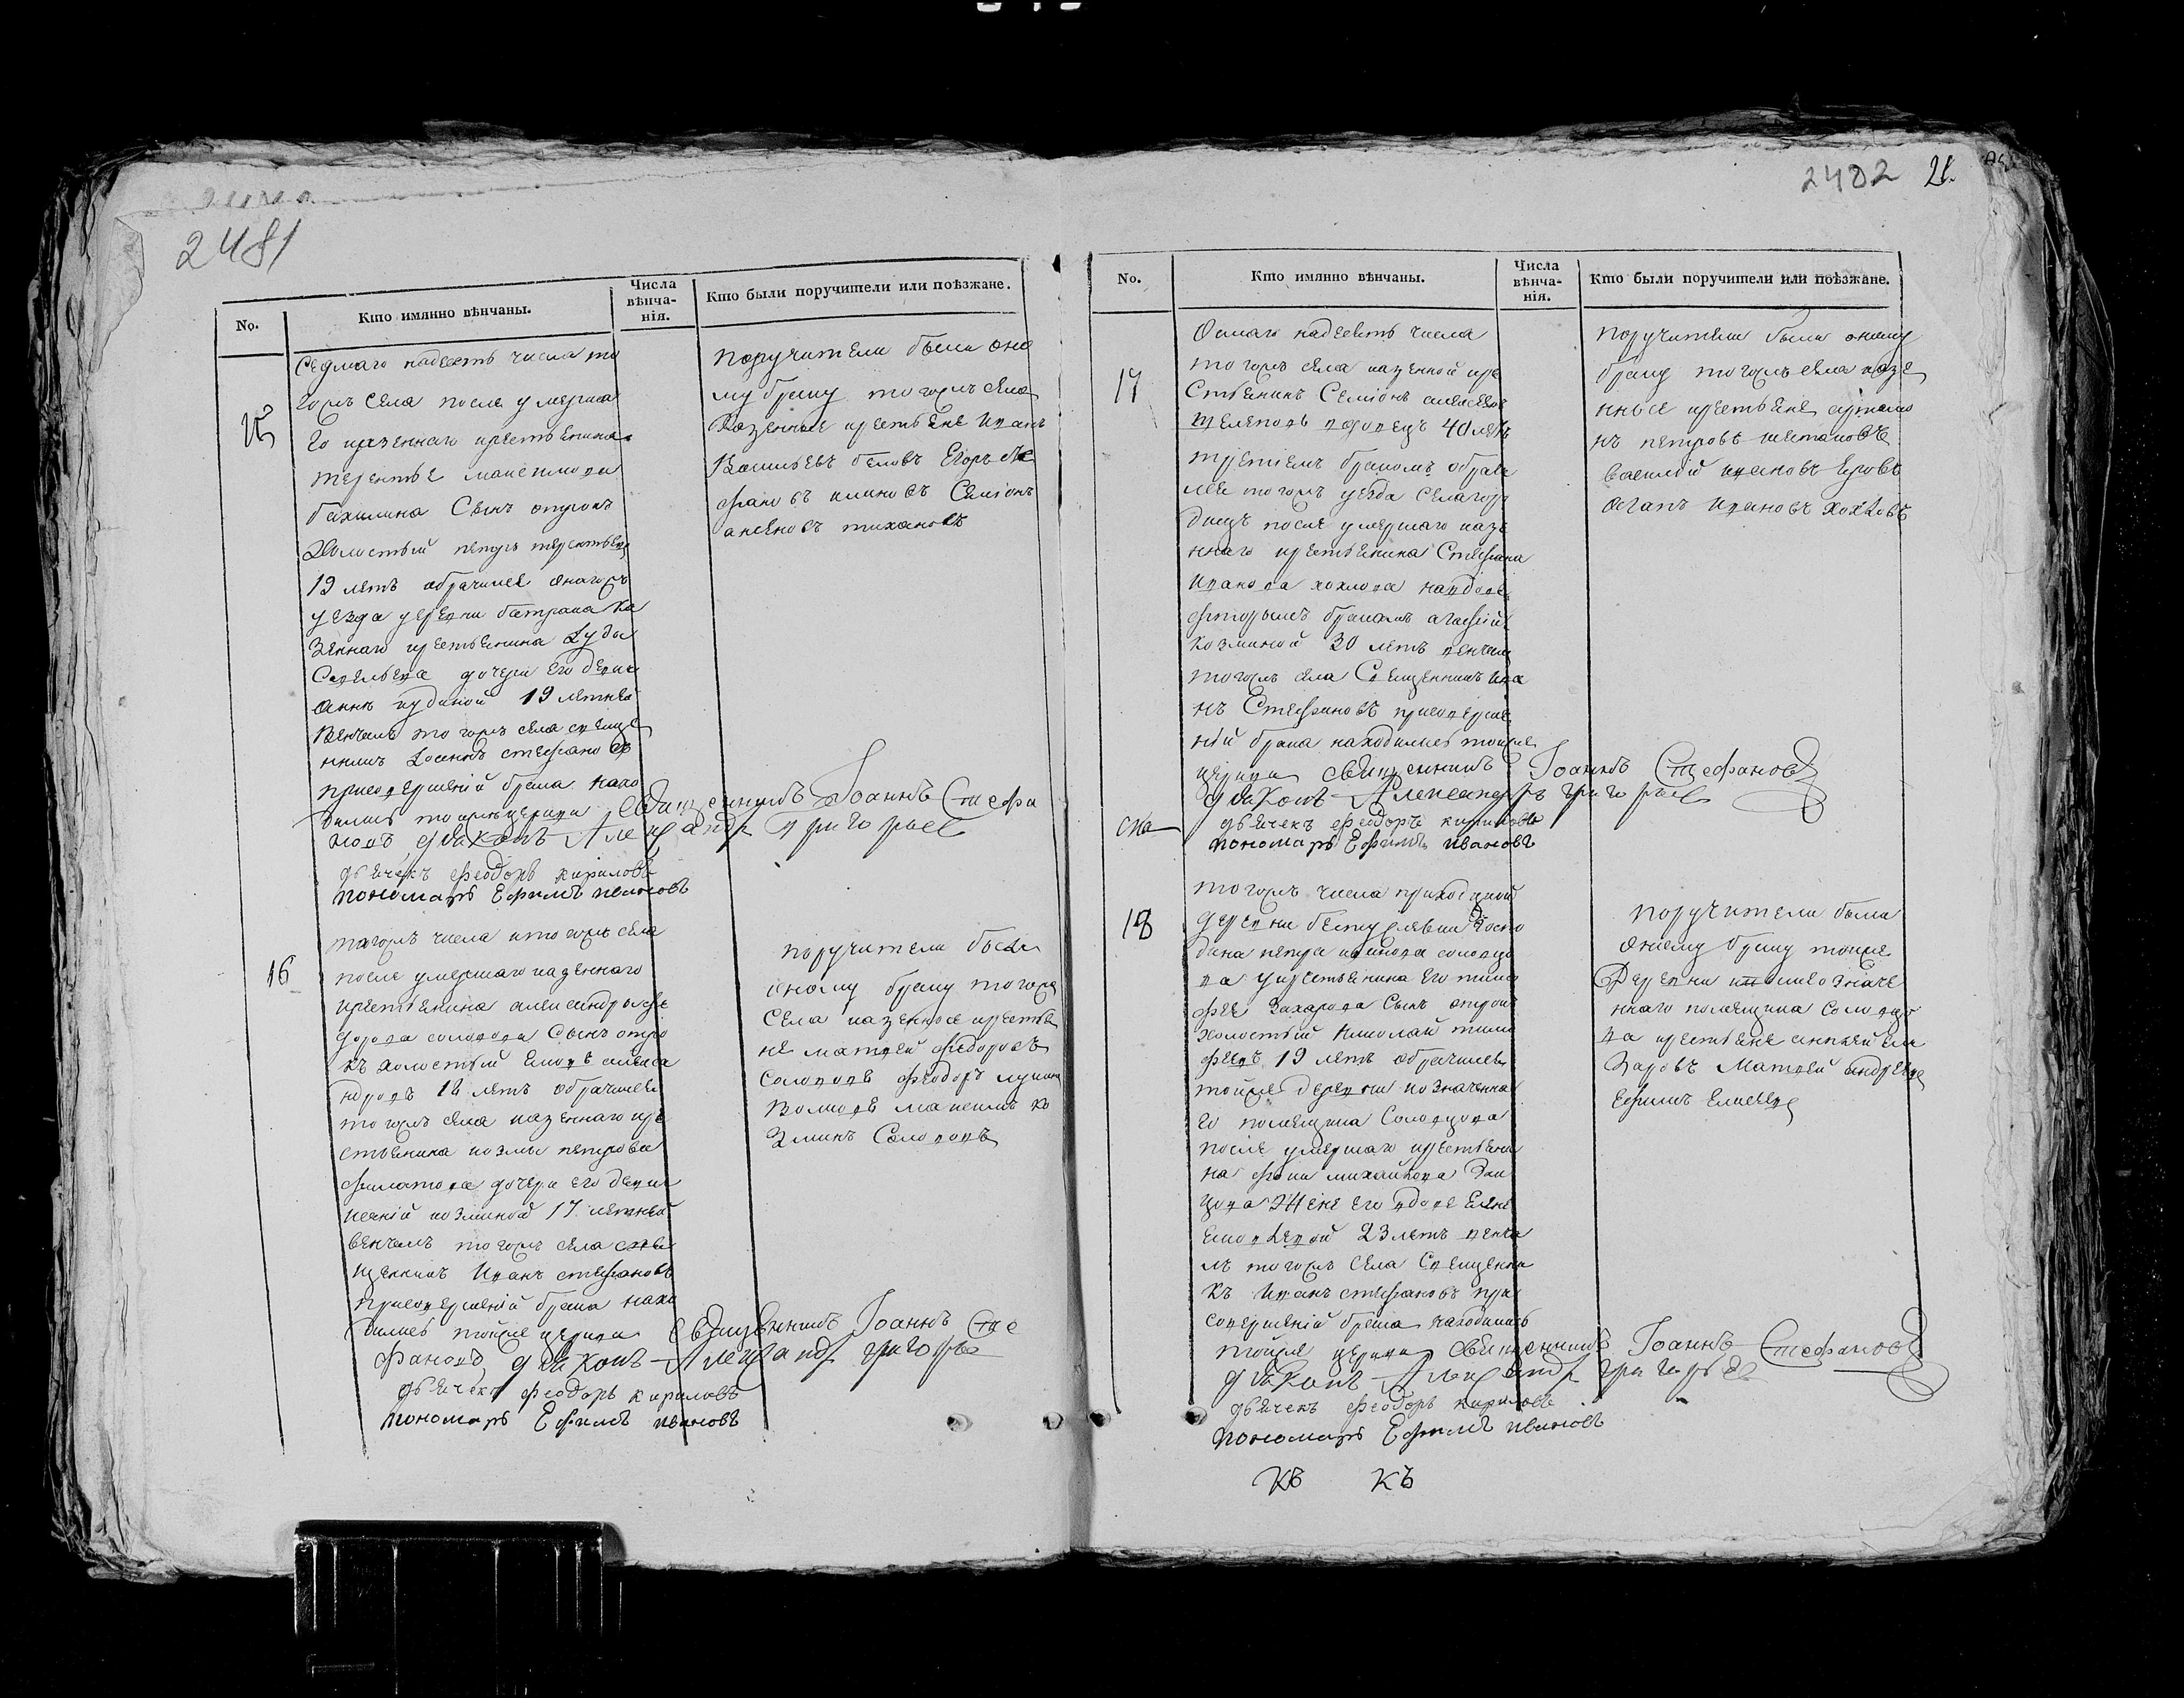 2481
No.
Кто имянно вѣнчаны.
Числа
вѣнча-
нія.
Кто были поручители или поѣзжане.
15
Седмаго надесеть числа то
гожъ села после умерша
го казеннаго крестьянина
терентье максимова
бахилина Сынъ отрокъ
Холостый петръ терентьевъ
19 летъ обрачился онагожъ
уезда деревни батрака ка
зеннаго крестьянина Иуды
Савельева дочери его девки
анне иудиной 19 летней
Венчалъ тогожъ села свяще
нникъ Иоаннъ стефановъ
присовершеній брака нахо
дились тоижъ церкви Священникъ Іоаннъ Стефа
новъ діаконъ Александръ григорьевъ
дьячекъ Феодоръ кириловъ
пономарь Ефимъ ивановъ
поручители были оно
му браку тогожъ села
Казенные крестьяне иванъ
Васильевъ беловъ Егоръ сте
фановъ Семіонъ
тихановъ
16
тогожъ числа итогожъ села
после умершаго казеннаго
крестьянина александры фе
дорова солопова Сынъ отро
къ холостый алекса
ндровъ 18 летъ обрачился
тогожъ села казеннаго кре
стьянина козмы петрова
филатова дочери его девки
козминой 17 летней
венчалъ тогожъ села свя
щенникъ Иванъ стефановъ
присовершеній брака нахо
дились тоиже церкви Священникъ Іоаннъ Сте
фановъ діаконъ Александръ григорьевъ
дьячекъ Феодоръ кириловъ
пономарь Ефимъ ивановъ
поручители были
оному браку тогожъ
Села казенные крестья
не матвей федоровъ
солоповъ феодоръ
максимъ ко
зминъ Солоповъ
2482 21.
No.
Кто имянно вѣнчаны.
Числа
вѣнча-
нія.
Кто были поручители или поѣзжане.
17
Осмаго надесеть числа
тогожъ села казенной кре
Стьянинъ Семіонъ алексеевъ
вдовецъ 40 летъ
третіемъ бракомъ обрачи
лся тогожъ уезда села
после умершаго казе
ннаго крестьянина Стефана
иванова хохлова на вдове
фторымъ бракомъ агафіи
козминой 30 летъ венчалъ
тогожъ села Священникъ ива
нъ Стефановъ присоверше
ній брака находились тоиже
церкви священникъ Іоаннъ Стефановъ
діаконъ Александръ григорьевъ
дьячекъ Феодоръ кириловъ
пономарь Ефимъ ивановъ
поручители были оному
браку тогожъ села казе
нные крестьяне артамо
нъ петровъ
василій ивановъ
агапъ ивановъ хохловъ
18
тогожъ числа приходской
деревни госпо
дина петра иванова
ва крестьянина его тимо
фея Захарова Сынъ отрокъ
холостый николай тимо
феевъ 19 летъ обрачился
тойже деревни
го помещика
после умершаго крестьяни
на фоки михайлова
жене его вдове Елене
23 летъ венча
лъ тогожъ села Священни
къ Иванъ стефановъ при
совершеній брака находились
тоиже церкви Священникъ Іоаннъ Стефановъ
діаконъ Александръ григорьевъ
дьячекъ Феодоръ кириловъ
пономарь Ефимъ ивановъ
поручители были
оному браку тоиже
Деревни
ннаго помещика
ва крестьяне
заровъ Матвей андреевъ
Ефимъ Елисеевъ
КВ КЪ